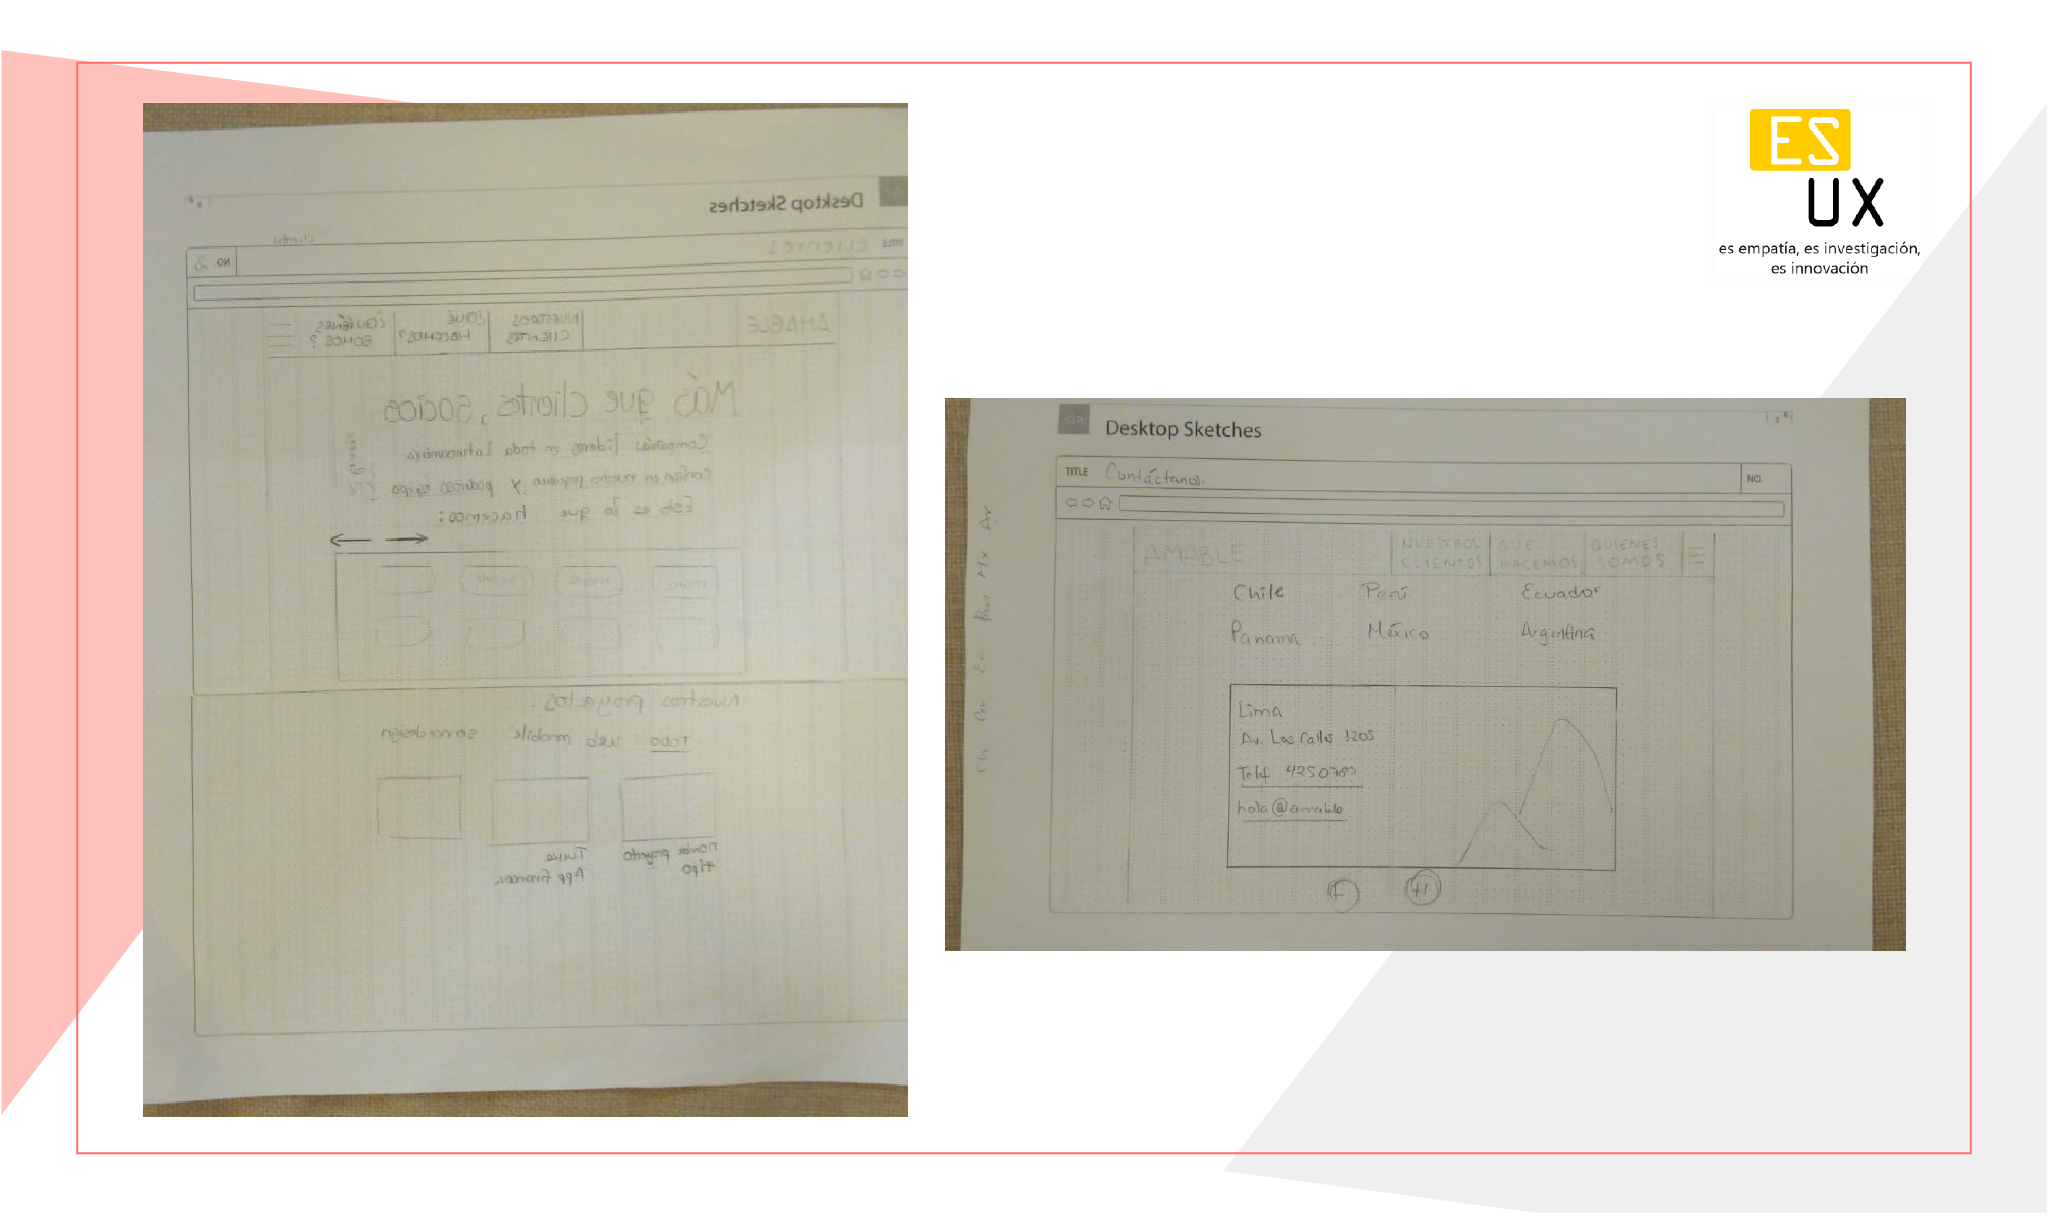 Desktop Sketches
TITLE CLIENTES
clientes
NO. 2
AMABLE
NUESTROS CLIENTES
¿QUÉ HACEMOS?
¿QUIÉNES SOMOS?
Más que clientes, socios
Compañías líderes en toda Latinoamérica
Confían en nuestro pequeño y poderoso equipo
Esto es lo que hacemos:
Nuestros proyectos.
TODO web mobile
nombre proyecto
tipo
App
ES
UX
es empatía, es investigación,
es innovación
Desktop Sketches
TITLE Contáctanos.
NO.
AMABLE
NUESTROS CLIENTES
QUE HACEMOS
QUIENES SOMOS
Chile Perú Ecuador
Panama México Argentina
Lima
Av. Las Calles 3205
Telf
hola@amable